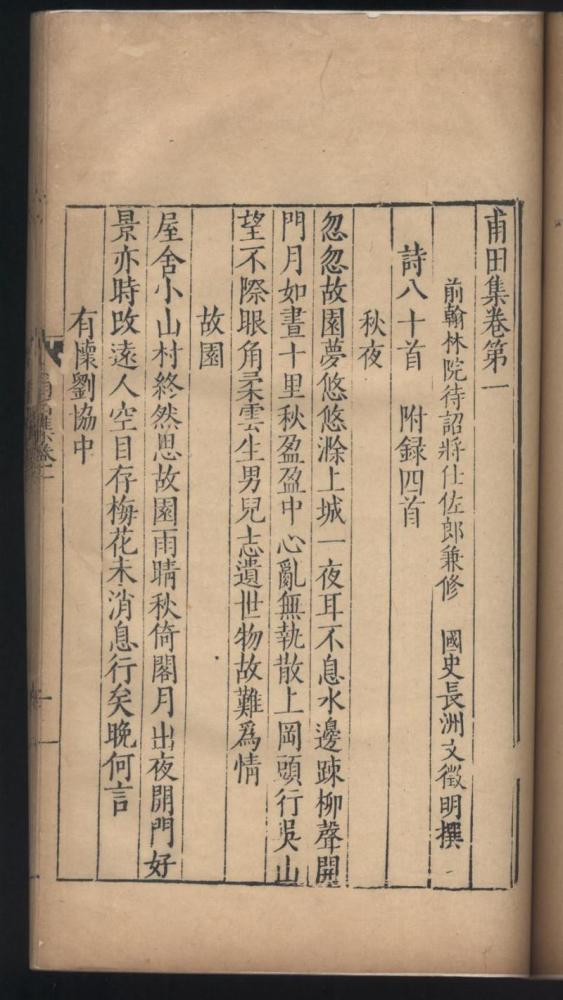 甫田集卷第一
前翰林院待詔將仕佐郎兼修　國史長洲文徵明撰
詩八十首　附録四首
秋夜
忽忽故園夢悠悠滁上城一夜耳不息水邊踈柳聲開
門月如晝十里秋盈盈中心亂無執散上岡頭行吳山
望不際眼角柔雲生男兒志遺世物故難爲情
故園
屋舍小山村終然思故園雨晴秋倚閣月出夜開門好
景亦時改遠人空目存梅花未消息行矣晚何言
有懷劉協中